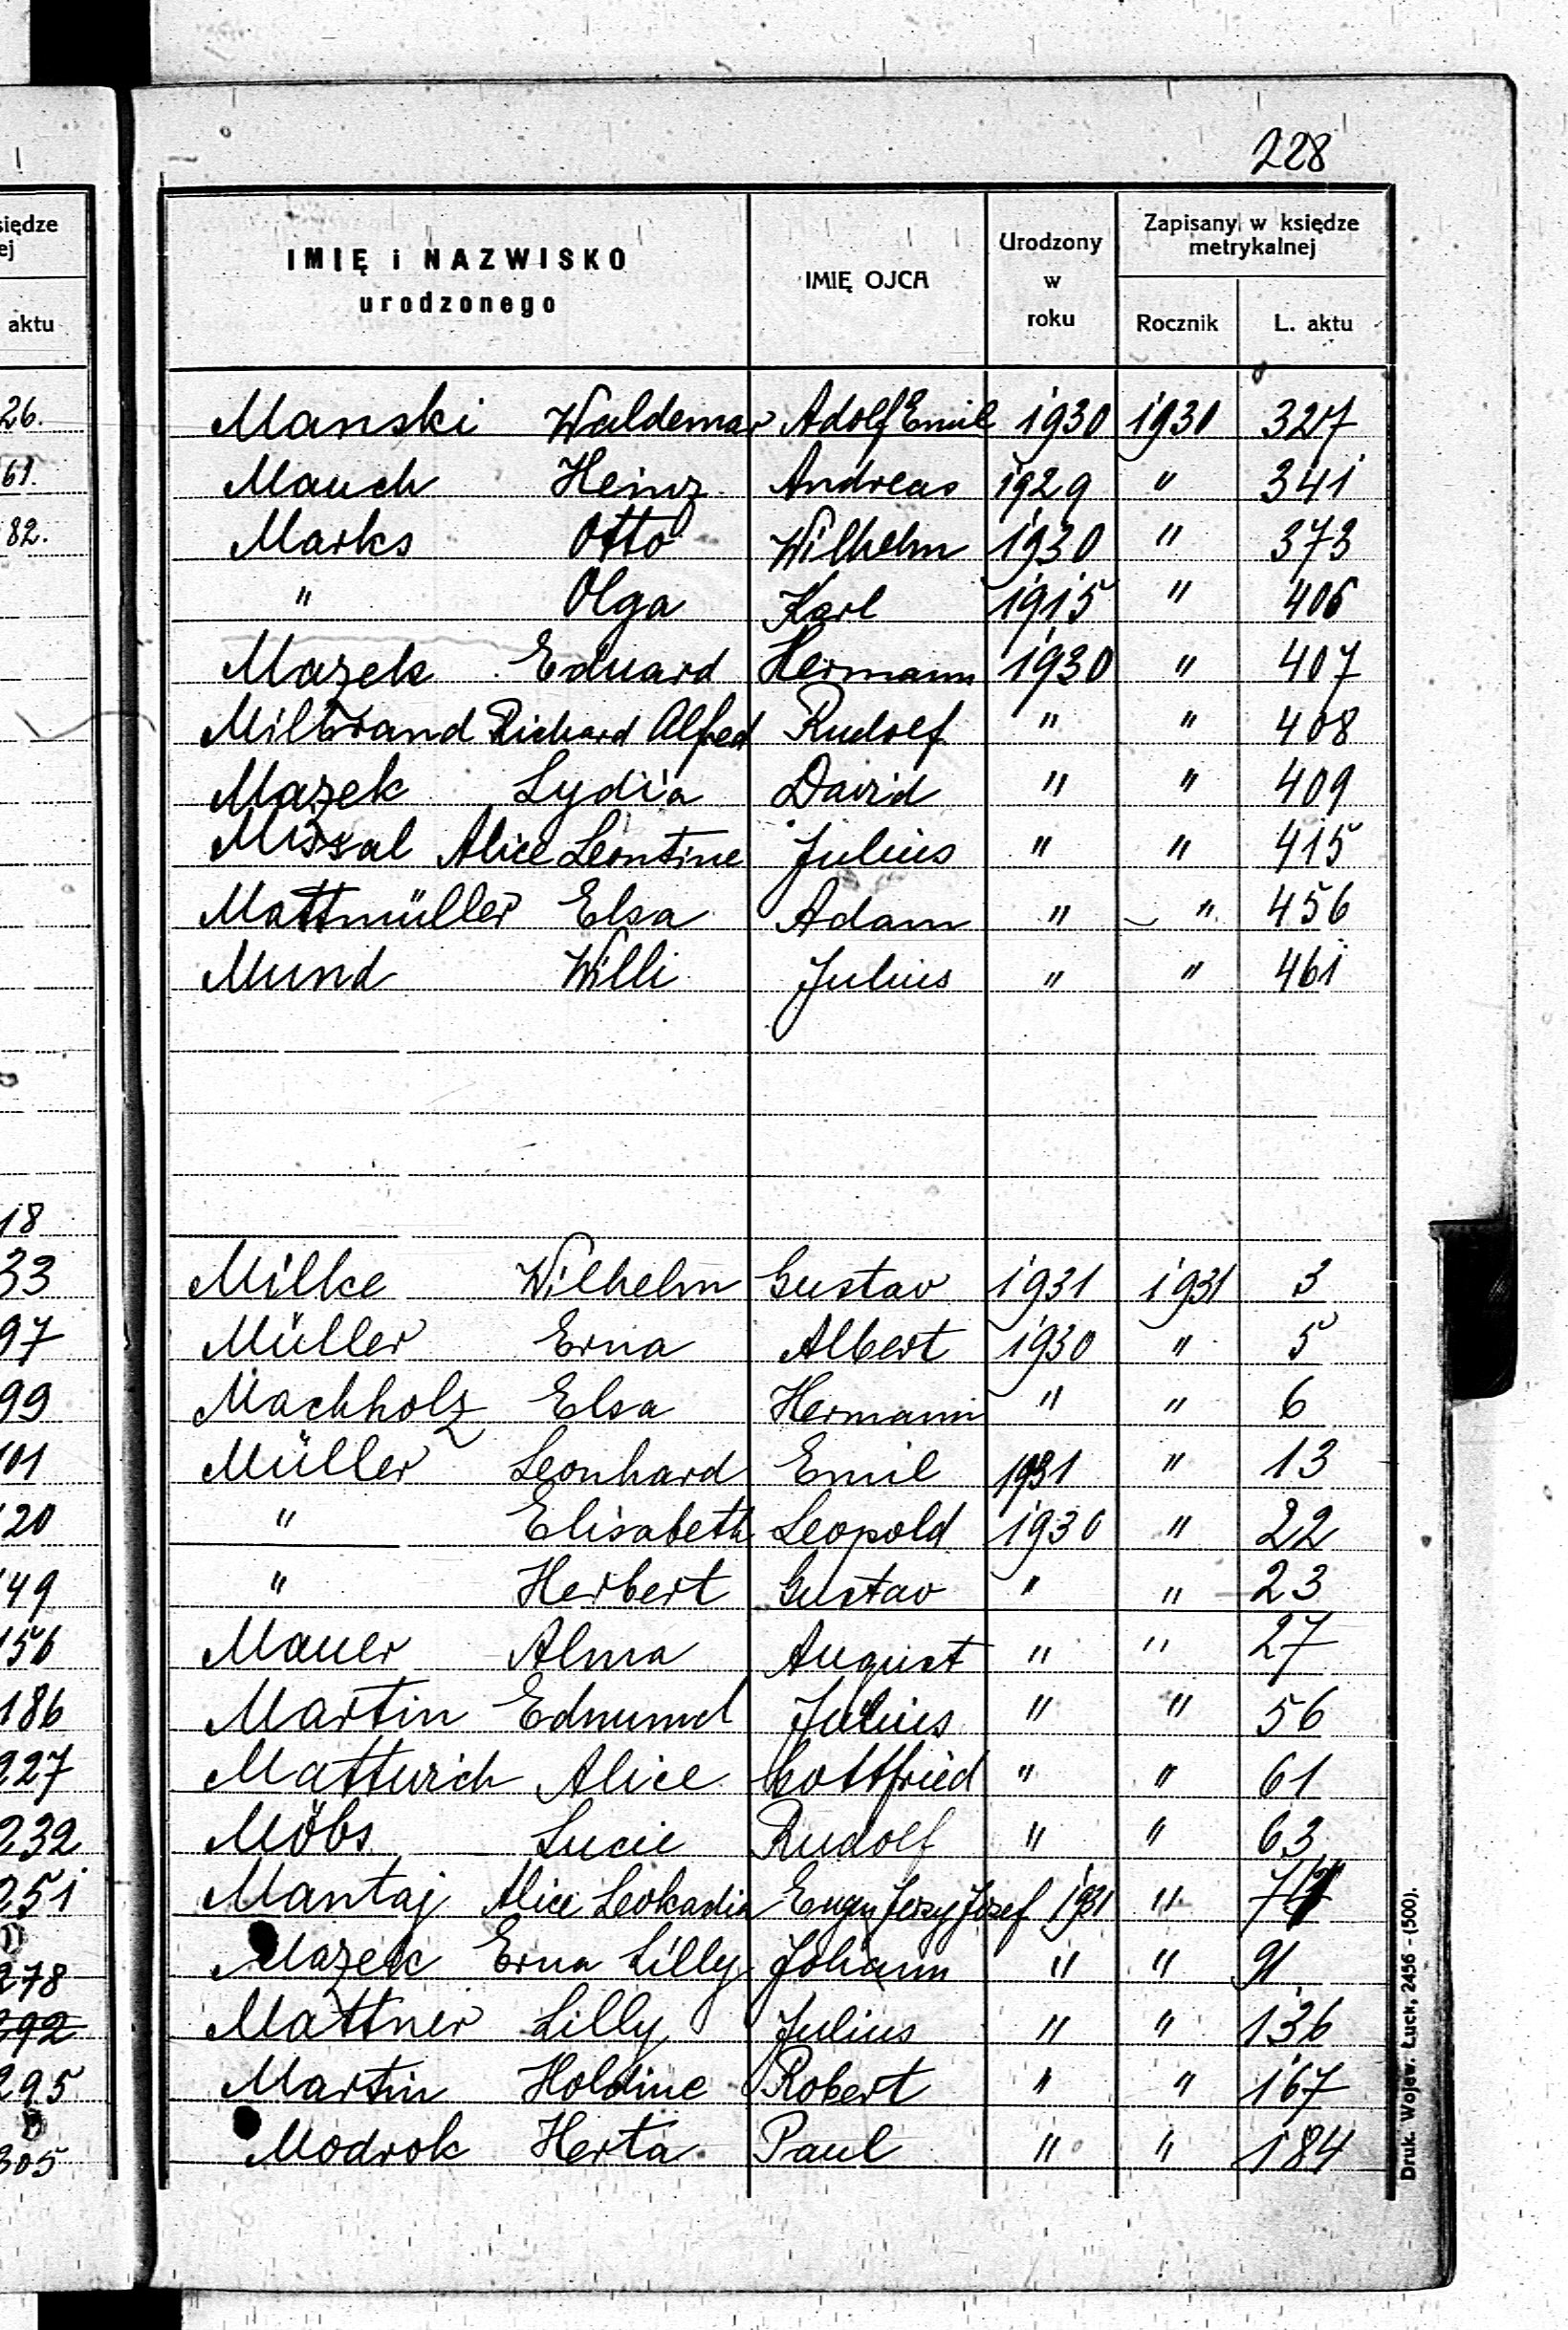 228
siędze
ej
aktu
26.
61.
82.
18
33
97
99
101
120
149
156
186
227
232
251
278
292
295
305
IMIĘ i NAZWISKO
urodzonego
IMIĘ OJCA
Urodzony
w
roku
Zapisany w księdze
metrykalnej
Rocznik
L. aktu
Manski Waldemar Adolf Emil 1930 1930 327
Mauch Heinz Andreas 1929 " 341
Marks Otto Wilhelm 1930 " 373
" Olga Karl 1915 " 406
Mazek Eduard Hermann 1930 " 407
Milbrand Richard Alfred Rudolf " " 408
Mazek Lydia David " " 409
Missal Alice Leontine Julius " " 415
Mattmüller Elsa Adam " " 456
Mund Willi Julius " " 461
Milke Wilhelm Gustav 1931 1931 3
Müller Erna Albert 1930 " 5
Machholz Elsa Hermann " " 6
Müller Leonhard Emil 1931 " 13
" Elisabeth Leopold 1930 " 22
" Herbert Gustav " " 23
Mauer Alma August " " 27
Martin Edmund Julius " " 56
Matteich Alice Gottfried " " 61
Möbs Lucie Rudolf " " 63
Mantaj Alice Leokadia Jerzy Jozef 1931 "
Mazek Erna Lilly Johann " " 91
Mattner Lilly Julius " " 136
Martin Holdine Robert " " 167
Modrok Herta Paul " " 184
Druk. Wojew. Łuck, 2456 - (500).